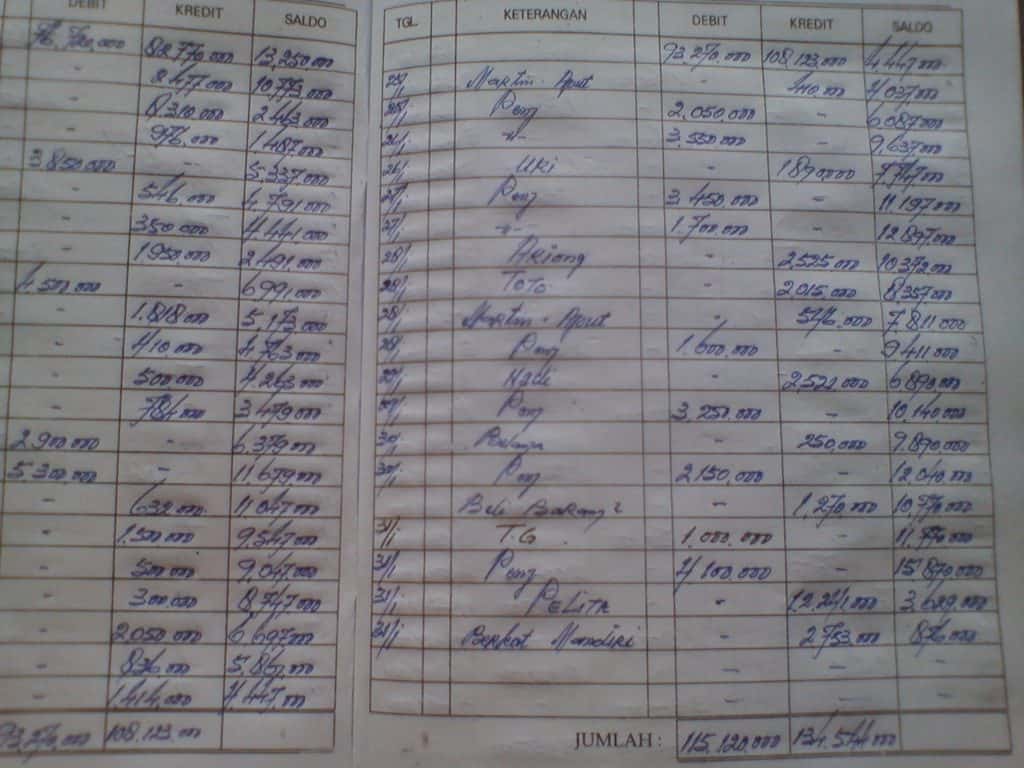 DEBIT KREDIT SALDO
82.770.000 13,250.000
- 2.477.000 10.773.000
- 8.310.000 2.463.000
- 976.000 1.487.000
3.850.000 - 5.337.000
- 546.000 4.791.000
- 350.000 4.441.000
- 1.950.000 2.491.000
4.500.000 - 6.991.000
- 1.818.000 5.173.000
- 410.000 4.763.000
- 500.000 4.263.000
- 784.000 3.479.000
2.900.000 - 6.379.000
5.300.000 - 11.679.000
- 632.000 11.047.000
- 1.500.000 9.547.000
- 500.000 9.047.000
- 300.000 8.747.000
- 2.050.000 6.697.000
- 836.000 5.861.000
- 1.414.000 4.447.000
93.270.000 108.123.000
TGL. KETERANGAN DEBIT KREDIT SALDO
93.270.000 108.123.000 4.447.000
Martin - 410.000 4.037.000
Pong 2.050.000 - 6.087.000
-"- 3.550.000 - 9.637.000
26/1 Uki - 1.890.000 7.747.000
27/1 Pong 3.450.000 - 11.197.000
27/1 -"- 1.700.000 - 12.897.000
28/1 Akiong - 2.525.000 10.372.000
28/1 TOTO - 2.015.000 8.357.000
28/1 Martin - 546.000 7.811.000
Pong 1.600.000 - 9.411.000
Hadi - 2.522.000 6.890.000
Pong 3.250.000 - 10.140.000
30/1 - 250.000 9.890.000
30/1 Pong 2.150.000 - 12.040.000
Beli Barang2 - 1.270.000 10.770.000
31/1 T.G 1.000.000 - 11.770.000
31/1 Pong 4.100.000 - 15.870.000
31/1 PELITA - 12.241.000 3.629.000
31/1 Berkat Mandiri - 2.753.000 876.000
- - -
- - -
JUMLAH : 115.120.000 134.544.000